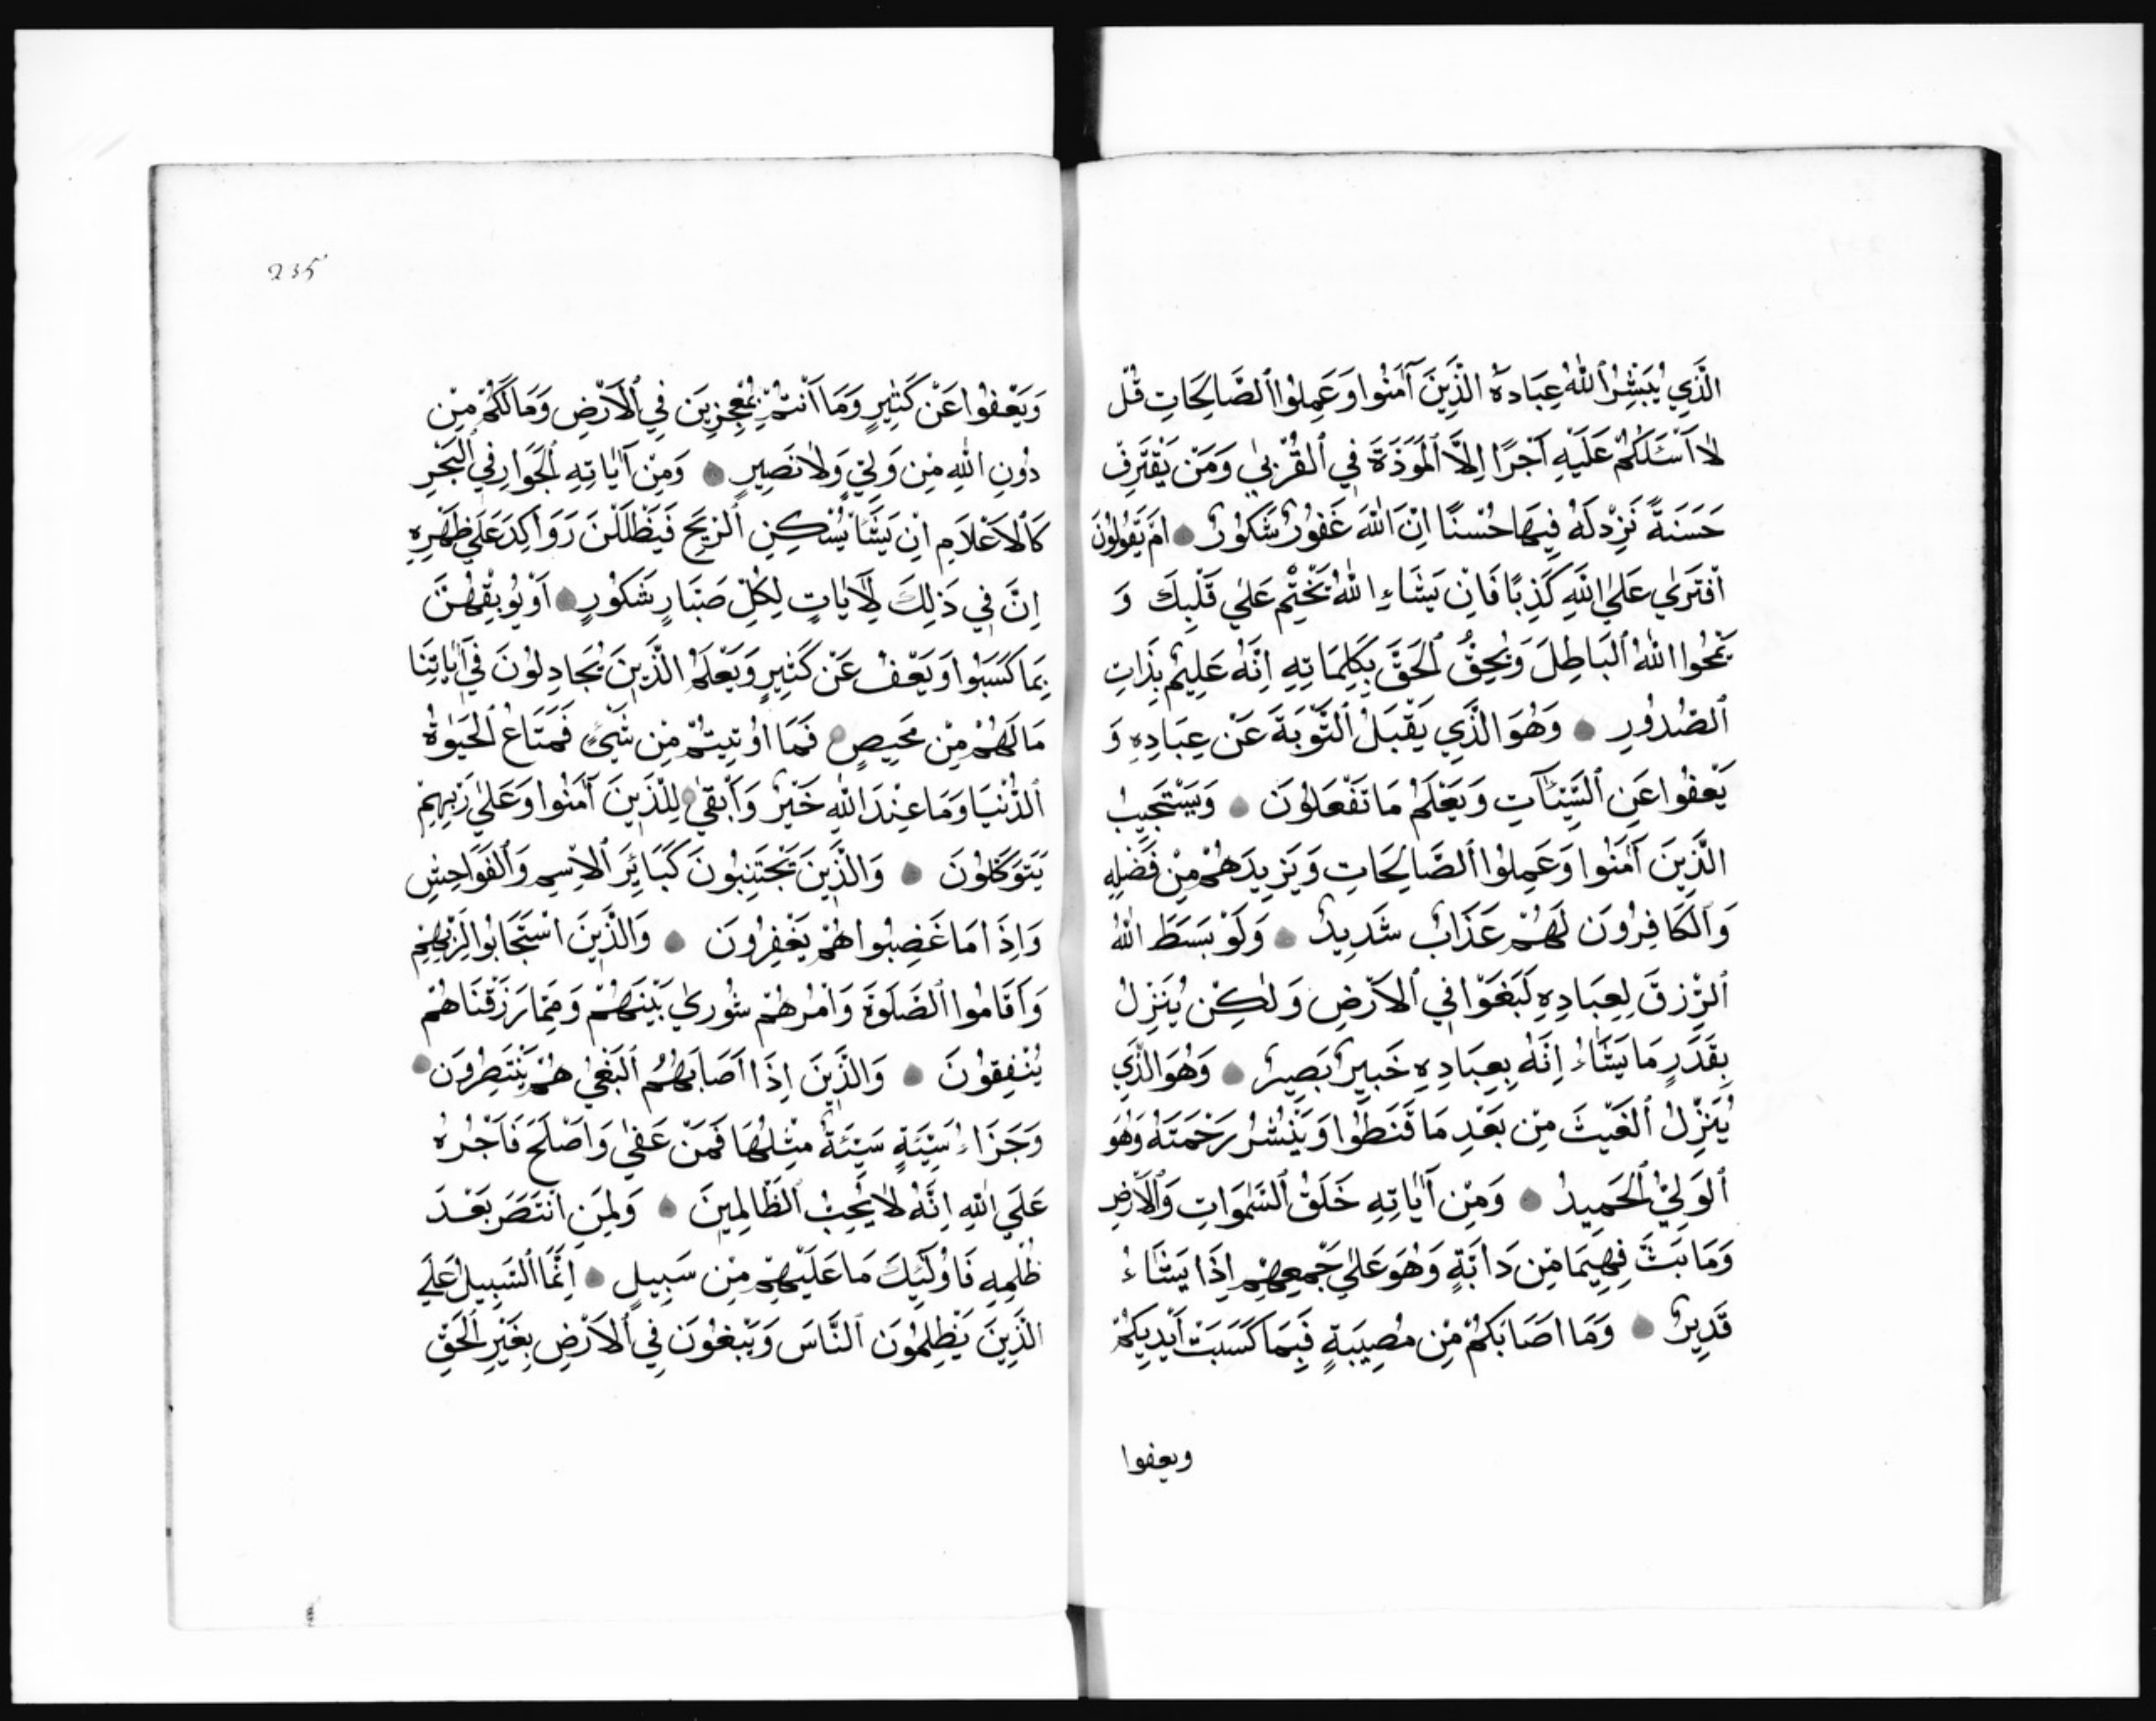 الَّذِي يُبَشِّرُ ٱللّٰهُ عِبَادَهُ الَّذِينَ آمَنُوا وَعَمِلُوا ٱلصَّالِحَاتِ قُلْ
لَا اَسْئَلُكُمْ عَلَيْهِ اَجْرًا اِلَّا ٱلْمَوَدَّةَ فِي ٱلْقُرْبٰي وَمَنْ يَقْتَرِفْ
حَسَنَةً نَزِدْ لَهُ فِيهَا حُسْنًا اِنَّ اللّٰهَ غَفُورٌ شَكُورٌ اَمْ يَقُولُونَ
اَفْتَرٰي عَلَي اللّٰهِ كَذِبًا فَاِنْ يَشَاءِ اللّٰهُ يَخْتِمْ عَلٰي قَلْبِكَ وَ
يَمْحُوا اللّٰهُ ٱلْبَاطِلَ وَيُحِقُّ ٱلْحَقَّ بِكَلِمَاتِهِ اِنَّهُ عَلِيمٌ بِذَاتِ
ٱلصُّدُورِ وَهُوَ الَّذِي يَقْبَلُ ٱلتَّوْبَةَ عَنْ عِبَادِهِ وَ
يَعْفُوا عَنِ ٱلسَّيِّئَاتِ وَيَعْلَمُ مَا تَفْعَلُونَ وَيَسْتَجِيبُ
الَّذِينَ آمَنُوا وَعَمِلُوا ٱلصَّالِحَاتِ وَيَزِيدُهُمْ مِنْ فَضْلِهِ
وَٱلْكَافِرُونَ لَهُمْ عَذَابٌ شَدِيدٌ وَلَوْ بَسَطَ اللّٰهُ
ٱلرِّزْقَ لِعِبَادِهِ لَبَغَوْا فِي ٱلْاَرْضِ وَلٰكِنْ يُنَزِّلُ
بِقَدَرٍ مَا يَشَاءُ اِنَّهُ بِعِبَادِهِ خَبِيرٌ بَصِيرٌ وَهُوَ الَّذِي
يُنَزِّلُ ٱلْغَيْثَ مِنْ بَعْدِ مَا قَنَطُوا وَيَنْشُرُ رَحْمَتَهُ وَهُوَ
ٱلْوَلِيُّ ٱلْحَمِيدُ وَمِنْ آيَاتِهِ خَلْقُ ٱلسَّمٰوَاتِ وَٱلْاَرْضِ
وَمَا بَثَّ فِيهِمَا مِنْ دَابَّةٍ وَهُوَ عَلٰي جَمْعِهِمْ اِذَا يَشَاءُ
قَدِيرٌ وَمَا اَصَابَكُمْ مِنْ مُصِيبَةٍ فَبِمَا كَسَبَتْ اَيْدِيكُمْ
ويعفوا
235
وَيَعْفُوا عَنْ كَثِيرٍ وَمَا اَنْتُمْ بِمُعْجِزِينَ فِي ٱلْاَرْضِ وَمَا لَكُمْ مِنْ
دُونِ اللّٰهِ مِنْ وَلِيٍّ وَلَا نَصِيرٍ وَمِنْ آيَاتِهِ ٱلْجَوَارِ فِي ٱلْبَحْرِ
كَالْاَعْلَامِ اِنْ يَشَأْ يُسْكِنِ ٱلرِّيحَ فَيَظْلَلْنَ رَوَاكِدَ عَلٰي ظَهْرِهِ
اِنَّ فِي ذٰلِكَ لَآيَاتٍ لِكُلِّ صَبَّارٍ شَكُورٍ اَوْ يُوبِقْهُنَّ
بِمَا كَسَبُوا وَيَعْفُ عَنْ كَثِيرٍ وَيَعْلَمُ الَّذِينَ يُجَادِلُونَ فِي آيَاتِنَا
مَا لَهُمْ مِنْ مَحِيصٍ فَمَا اُوتِيتُمْ مِنْ شَيْءٍ فَمَتَاعُ ٱلْحَيٰوةُ
ٱلدُّنْيَا وَمَا عِنْدَ اللّٰهِ خَيْرٌ وَاَبْقٰي لِلَّذِينَ آمَنُوا وَعَلٰي رَبِّهِمْ
يَتَوَكَّلُونَ وَالَّذِينَ يَجْتَنِبُونَ كَبَائِرَ ٱلْاِثْمِ وَٱلْفَوَاحِشِ
وَاِذَا مَا غَضِبُوا هُمْ يَغْفِرُونَ وَالَّذِينَ اسْتَجَابُوا لِرَبِّهِمْ
وَاَقَامُوا ٱلصَّلٰوةَ وَاَمْرُهُمْ شُورٰي بَيْنَهُمْ وَمِمَّا رَزَقْنَاهُمْ
يُنْفِقُونَ وَالَّذِينَ اِذَا اَصَابَهُمُ ٱلْبَغْيُ هُمْ يَنْتَصِرُونَ
وَجَزَاءُ سَيِّئَةٍ سَيِّئَةٌ مِثْلُهَا فَمَنْ عَفٰي وَاَصْلَحَ فَاَجْرُهُ
عَلَي اللّٰهِ اِنَّهُ لَا يُحِبُّ ٱلظَّالِمِينَ وَلِمَنِ انْتَصَرَ بَعْدَ
ظُلْمِهِ فَاُولٰئِكَ مَا عَلَيْهِمْ مِنْ سَبِيلٍ اِنَّمَا ٱلسَّبِيلُ عَلَي
الَّذِينَ يَظْلِمُونَ ٱلنَّاسَ وَيَبْغُونَ فِي ٱلْاَرْضِ بِغَيْرِ ٱلْحَقِّ